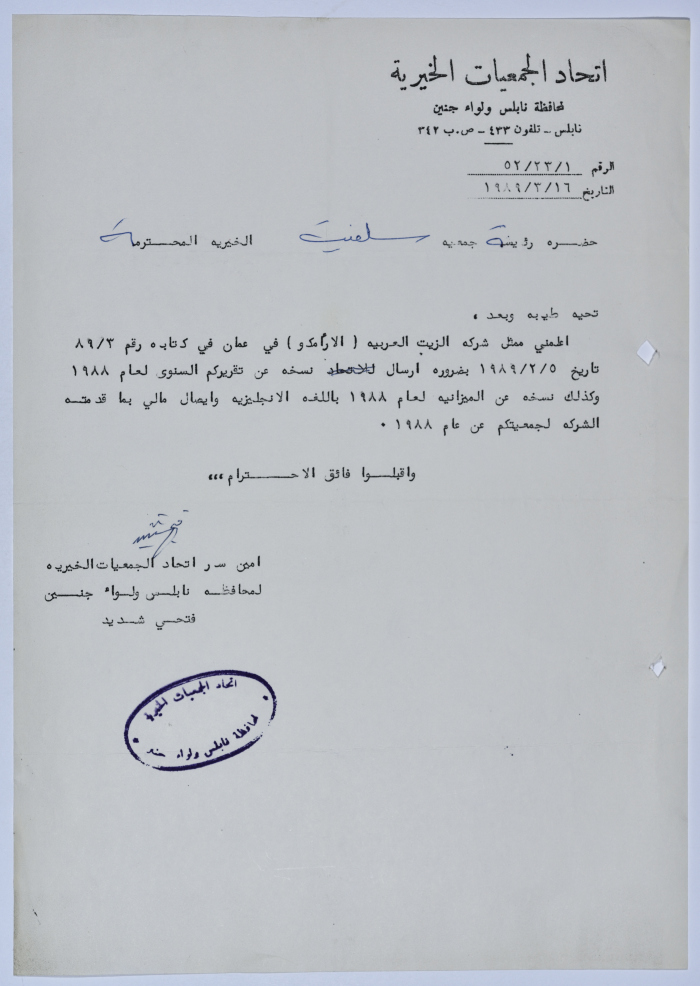 اتحاد الجمعيات الخيرية
لمحافظة نابلس ولواء جنين
نابلس - تلفون ٤٣٣ - ص.ب ٣٤٢
الرقم ٥٢/٢٣/١
التاريخ ١٩٨٩/٣/١٦
حضره رئيسة جمعيه سلفيت الخيريه المحترمة
تحيه طيبه وبعد ،
اعلمني ممثل شركه الزيت العربيه ( الارامكو ) في عمان في كتابه رقم ٨٩/٣
تاريخ ١٩٨٩/٢/٥ بضروره ارسال للاتحاد نسخه عن تقريركم السنوى لعام ١٩٨٨
وكذلك نسخه عن الميزانيه لعام ١٩٨٨ باللغه الانجليزيه وايصال مالي بما قدمته
الشركه لجمعيتكم عن عام ١٩٨٨ ٠
واقبلوا فائق الاحترام ،،،
امين سر اتحاد الجمعيات الخيريه
لمحافظه نابلس ولواء جنين
فتحي شديد
اتحاد الجمعيات الخيرية
لمحافظة نابلس ولواء جنين